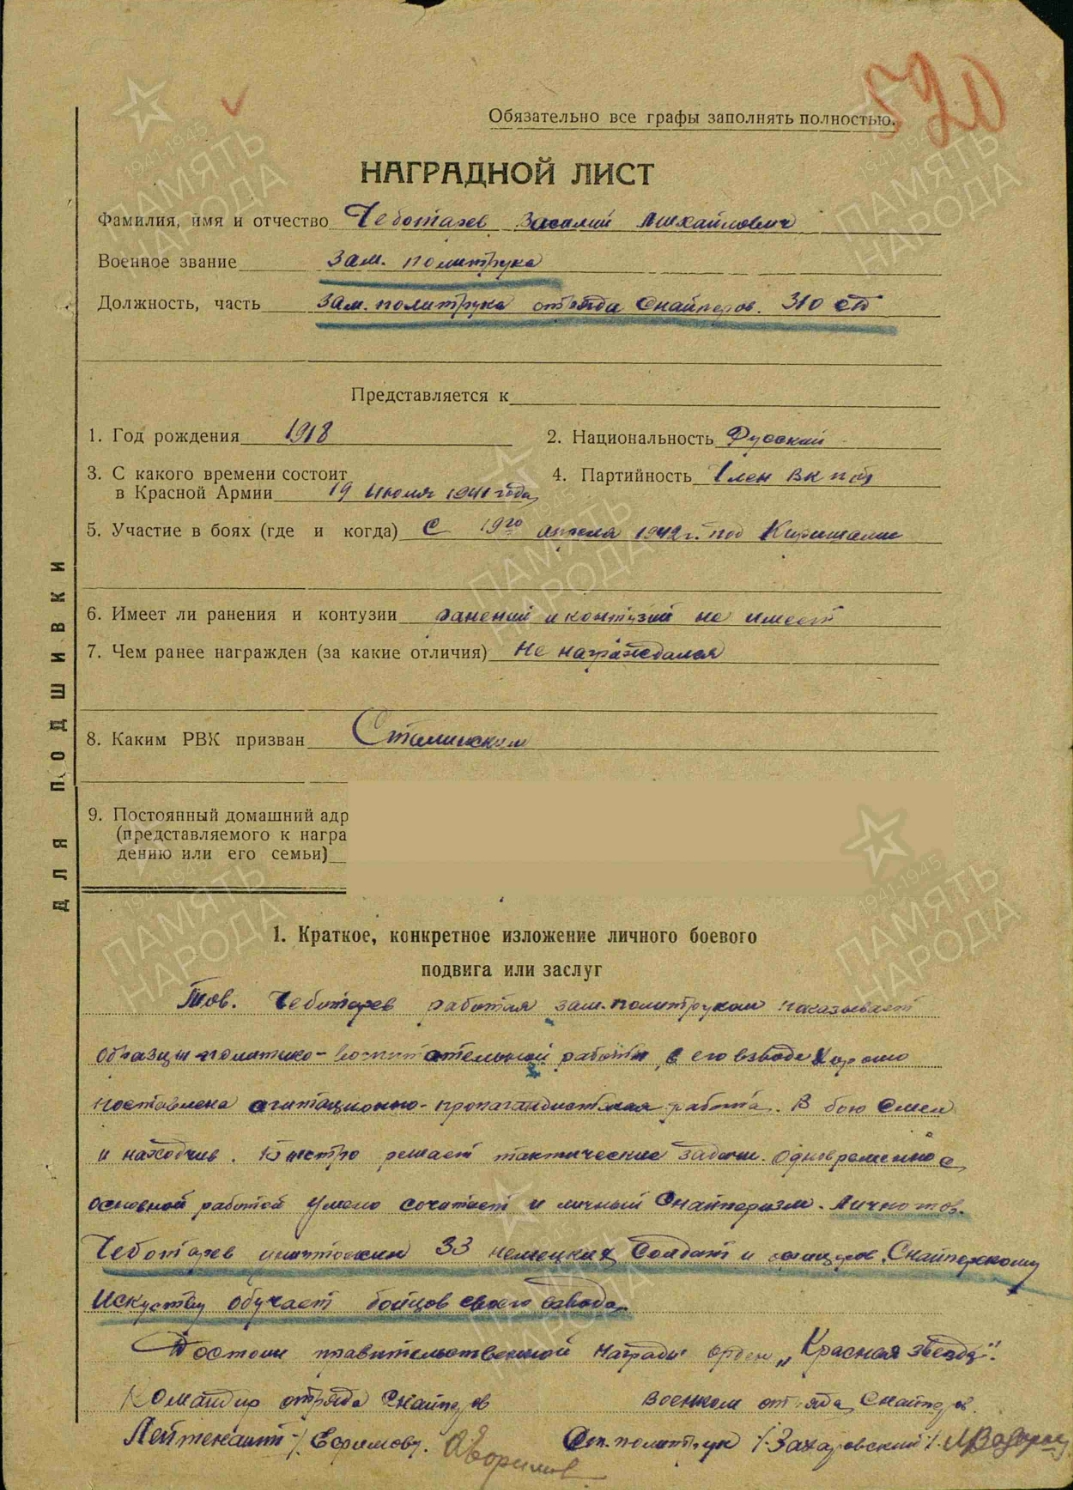 520
Обязательно все графы заполнять полностью.
НАГРАДНОЙ ЛИСТ
Фамилия, имя и отчество Чеботарев Василий Михайлович
Военное звание зам. политрука
Должность, часть зам. политрука отряда Снайперов. 310 сд
Представляется к
1. Год рождения 1918
2. Национальность Русский
3. С какого времени состоит
в Красной Армии 19 июля 1941 года
4. Партийность Член ВКП(б)
5. Участие в боях (где и когда) С 19го апреля 1942 г. под Киришами
6. Имеет ли ранения и контузии ранений и контузий не имеет
7. Чем ранее награжден (за какие отличия) Не награждался
8. Каким РВК призван Сталинским
9. Постоянный домашний адр
(представляемого к награ
дению или его семьи)
ДЛЯ ПОДШИВКИ
1. Краткое, конкретное изложение личного боевого
подвига или заслуг
Тов. Чеботарев работая зам. политруком показывает
образцы политико-воспитательной работы, в его взводе хорошо
поставлена агитационно-пропагандистская работа. В бою смел
и находчив. Быстро решает тактические задачи. Одновременно с
основной работой умело сочетает и личный Снайперизм. Лично тов.
Чеботарев уничтожил 33 немецких Солдат и офицеров. Снайперскому
Искусству обучает бойцов своего взвода.
Достоин правительственной награды орден „Красная звезда".
Командир отряда Снайперов
Военком отряда Снайперов
Лейтенант /Ефимов/.
Ст. политрук /Захаровский/.
ПАМЯТЬ НАРОДА
1941-1945